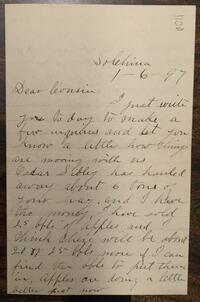 So China
1-6-97
Dear Cousin
I just write
you to day to make a
few inquires and let you
know a little how things
are moving with us
Oscar Sibley has hauled
away about 6 tons of
your hay, and I have
the money, I have sold
25 bbls of apples and
think there will be about
20 or 25 bbls more if I can
find the bbls to put them
in, apples are doing a little
better just now